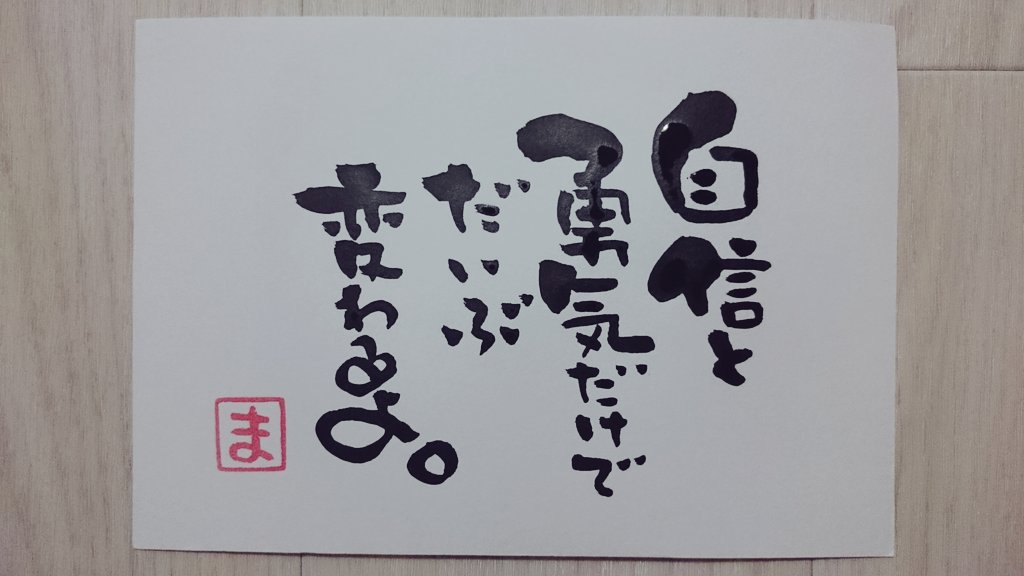 自信と
勇気だけで
だいぶ
変わるよ。
ま